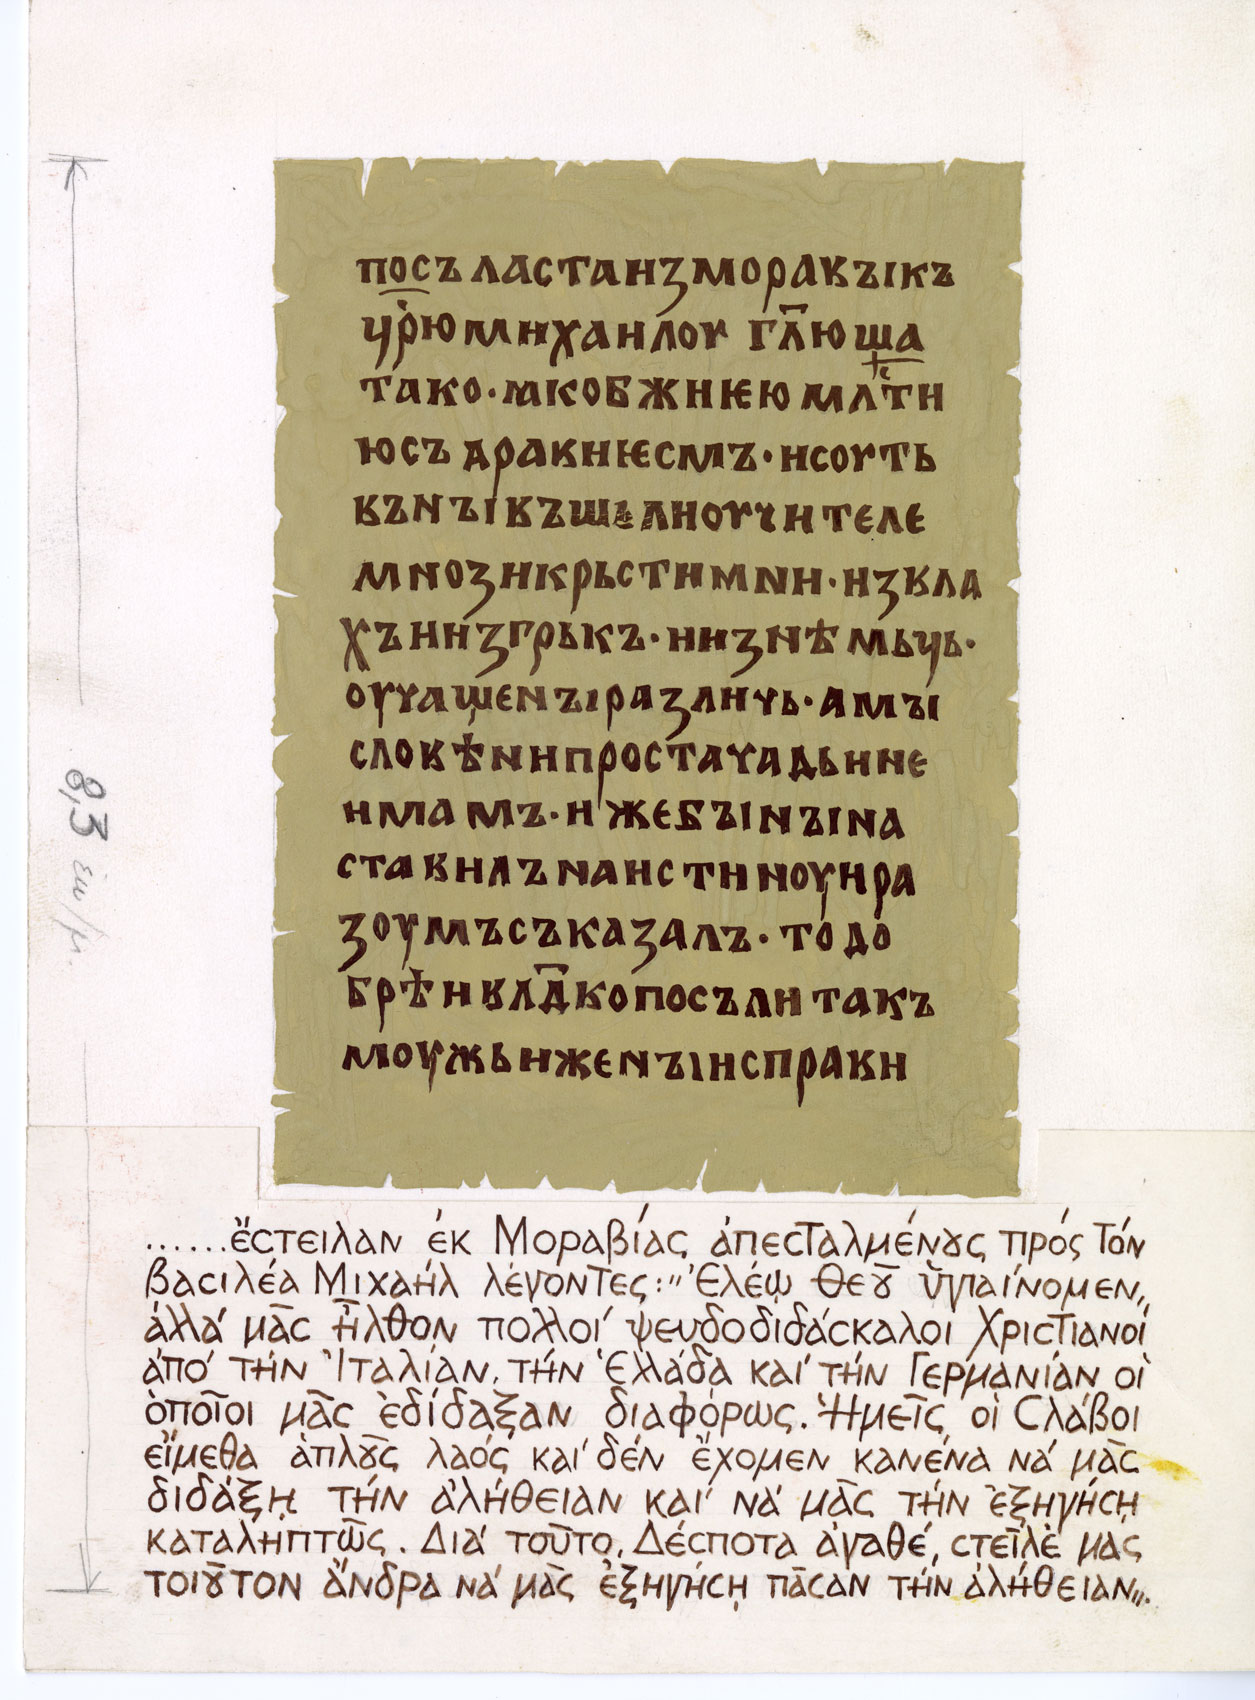 посъластанзморавъікъ
цр҃юмнханлоу гл҃юща
тако· ꙗкобжнѥюмлⷭ҇тн
юсъдравнѥсмъ·нсоуть
вънъівъшьлноучнтеле
мнознкрьстнꙗнн·нзвла
хъннꙁгрькъ·ннꙁнѣмьць·
оучащенъіраꙁлнчь·амъі
словѣннпростачадьнне
нмамъ·нжебъінъіна
ставнлънанстнноунра
ꙁоумъсъкаꙁалъ·тодо
брѣнвлд҃копосълнтакъ
моужьнженъінсправн
8,3 ἑκ/μ.
......ἔστειλαν ἐκ Μοραβίας ἀπεσταλμένȣς πρός τόν
βασιλέα Μιχαήλ λέγοντες: "Ἐλέῳ Θεȣ͂ ὑγιαίνομεν,
ἀλλά μᾶς ἦλθον πολλοί ψευδοδιδάσκαλοι Χριστιανοί
ἀπό τήν Ἰταλίαν, τήν Ἑλλάδα καί τήν Γερμανίαν οἱ
ὁποῖοι μᾶς ἐδίδαξαν διαφόρως. Ἡμεῖς οἱ Σλάβοι
εἴμεθα ἁπλȣ͂ς λαός καί δέν ἔχομεν κανένα νά μᾶς
διδάξῃ τήν ἀλήθειαν καί νά μᾶς τήν ἐξηγήσῃ
καταληπτῶς. Διά τοῦτο, Δέσποτα ἀγαθέ, στεῖλέ μας
τοιȣ͂τον ἄνδρα νά μᾶς ἐξηγήσῃ πᾶσαν τήν ἀλήθειαν".